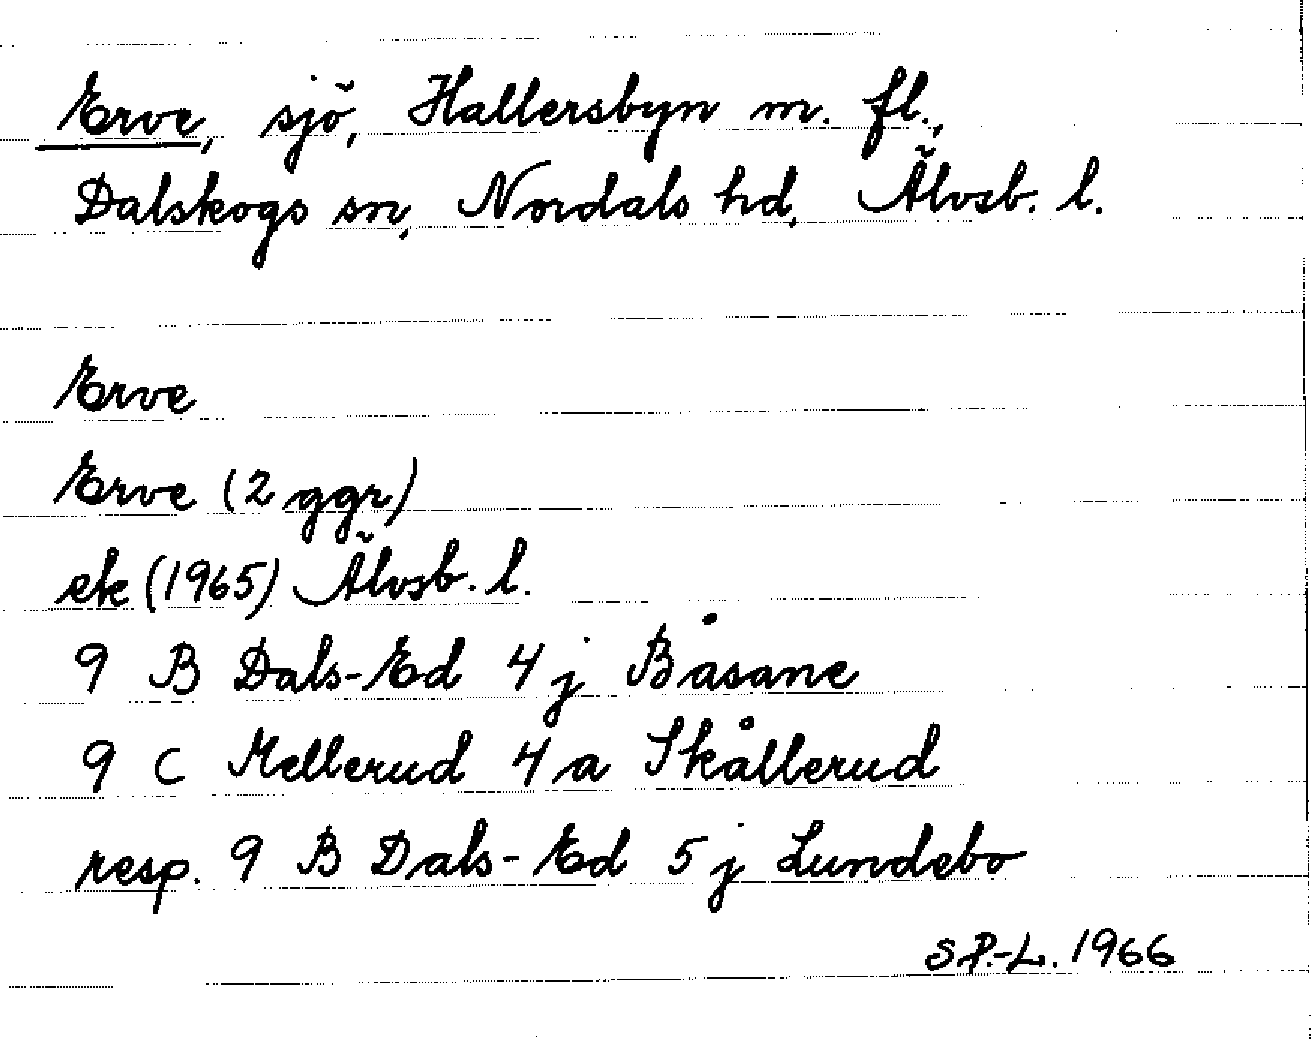 Erve, sjö, Hallersbyn m. fl.,
Dalskogs sn, Nordals hd, Älvsb. l.
Erve
Erve (2 ggr)
ek (1965) Älvsb. l.
9 B Dals-Ed 4 j Båsane
9 C Mellerud 4 a Skållerud
resp. 9 B Dals-Ed 5 j Lundebo
S P.-L. 1966